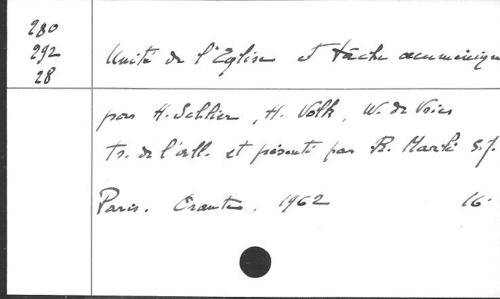 280
292
28
Unité de l'Eglise et tâche œcuménique
par H. Schlier, H. Volk, W. de Vries
tr. de l'all. et présenté par R. Marlé S.J.
Paris. Orante. 1962 16